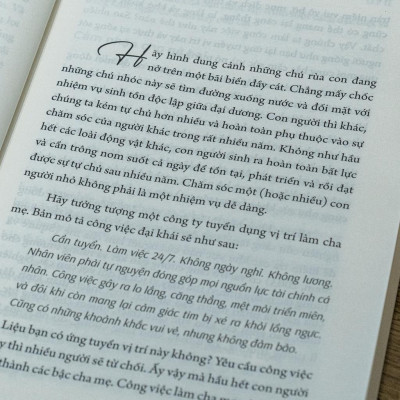 Hãy hình dung cảnh những chú rùa con đang
nở trên một bãi biển đầy cát. Chẳng mấy chốc
những chú nhóc này sẽ tìm đường xuống nước và đối mặt với
nhiệm vụ sinh tồn độc lập giữa đại dương. Con người thì khác,
chúng ta kém tự chủ hơn nhiều và hoàn toàn phụ thuộc vào sự
chăm sóc của người khác trong rất nhiều năm. Không như hầu
hết các loài động vật khác, con người sinh ra hoàn toàn bất lực
và cần trông nom suốt cả ngày để tồn tại, phát triển và rồi đạt
được sự tự chủ sau nhiều năm. Chăm sóc một (hoặc nhiều) con
người nhỏ không phải là một nhiệm vụ dễ dàng.
Hãy tưởng tượng một công ty tuyển dụng vị trí làm cha
mẹ. Bản mô tả công việc đại khái sẽ như sau:
Cần tuyển. Làm việc 24/7. Không ngày nghỉ. Không lương.
Nhân viên phải tự nguyện đóng góp mọi nguồn lực tài chính cá
nhân. Công việc gây ra lo lắng, căng thẳng, mệt mỏi triền miên,
và đôi khi còn mang lại cảm giác tim bị xé ra khỏi lồng ngực.
Cũng có những khoảnh khắc vui vẻ, nhưng không đảm bảo.
Liệu bạn có ứng tuyển vị trí này không? Yêu cầu công việc
y thì nhiều người sẽ từ chối. Ấy vậy mà hầu hết con người
thành các bậc cha mẹ. Công việc làm cha mẹ